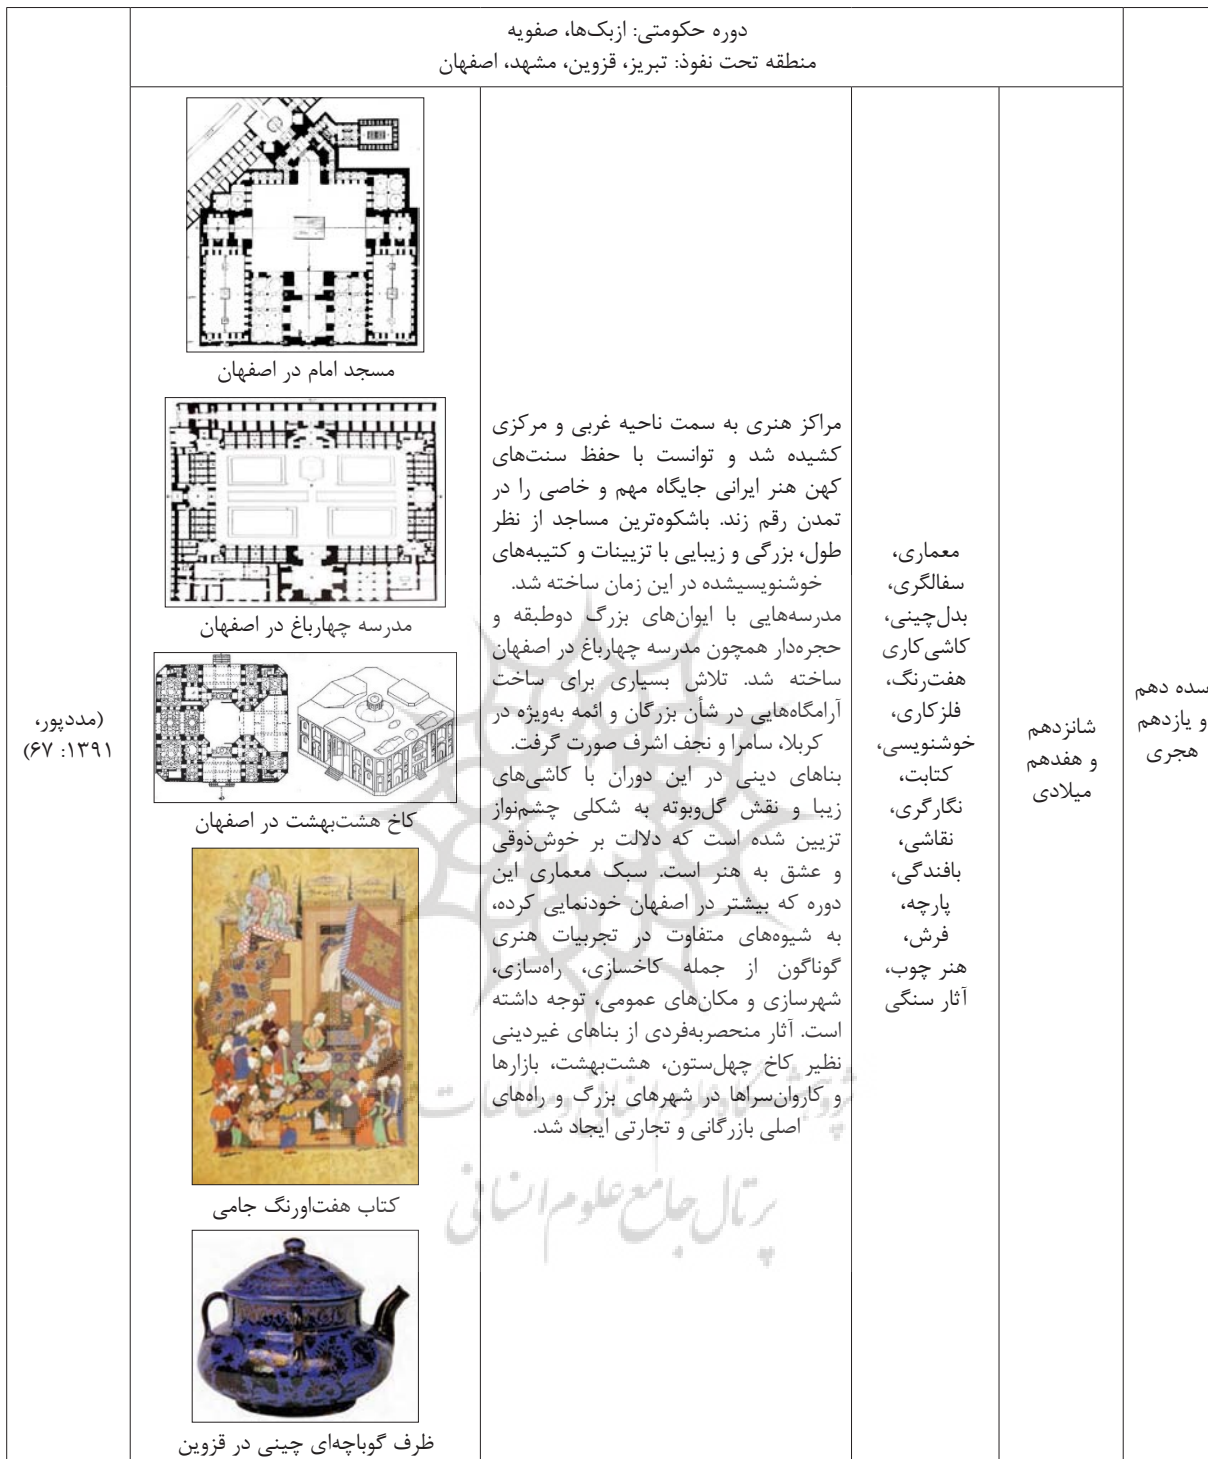 دوره حکومتی: ازبک‌ها، صفویه
منطقه تحت نفوذ: تبریز، قزوین، مشهد، اصفهان
سده دهم
و یازدهم
هجری
شانزدهم
و هفدهم
میلادی
معماری،
سفالگری،
بدل‌چینی،
کاشی‌کاری
هفت‌رنگ،
فلزکاری،
خوشنویسی،
کتابت،
نگارگری،
نقاشی،
بافندگی،
پارچه،
فرش،
هنر چوب،
آثار سنگی
مراکز هنری به سمت ناحیه غربی و مرکزی
کشیده شد و توانست با حفظ سنت‌های
کهن هنر ایرانی جایگاه مهم و خاصی را در
تمدن رقم زند. باشکوه‌ترین مساجد از نظر
طول، بزرگی و زیبایی با تزیینات و کتیبه‌های
خوشنویسیشده در این زمان ساخته شد.
مدرسه‌هایی با ایوان‌های بزرگ دوطبقه و
حجره‌دار همچون مدرسه چهارباغ در اصفهان
ساخته شد. تلاش بسیاری برای ساخت
آرامگاه‌هایی در شأن بزرگان و ائمه به‌ویژه در
کربلا، سامرا و نجف اشرف صورت گرفت.
بناهای دینی در این دوران با کاشی‌های
زیبا و نقش گل‌وبوته به شکلی چشم‌نواز
تزیین شده است که دلالت بر خوش‌ذوقی
و عشق به هنر است. سبک معماری این
دوره که بیشتر در اصفهان خودنمایی کرده،
به شیوه‌های متفاوت در تجربیات هنری
گوناگون از جمله کاخسازی، راه‌سازی،
شهرسازی و مکان‌های عمومی، توجه داشته
است. آثار منحصربه‌فردی از بناهای غیردینی
نظیر کاخ چهل‌ستون، هشت‌بهشت، بازارها
و کاروان‌سراها در شهرهای بزرگ و راه‌های
اصلی بازرگانی و تجارتی ایجاد شد.
مسجد امام در اصفهان
مدرسه چهارباغ در اصفهان
کاخ هشت‌بهشت در اصفهان
کتاب هفت‌اورنگ جامی
ظرف گوباچه‌ای چینی در قزوین
(مددپور،
۱۳۹۱: ۶۷)
پژوهشگاه علوم انسانی و مطالعات
پرتال جامع علوم انسانی